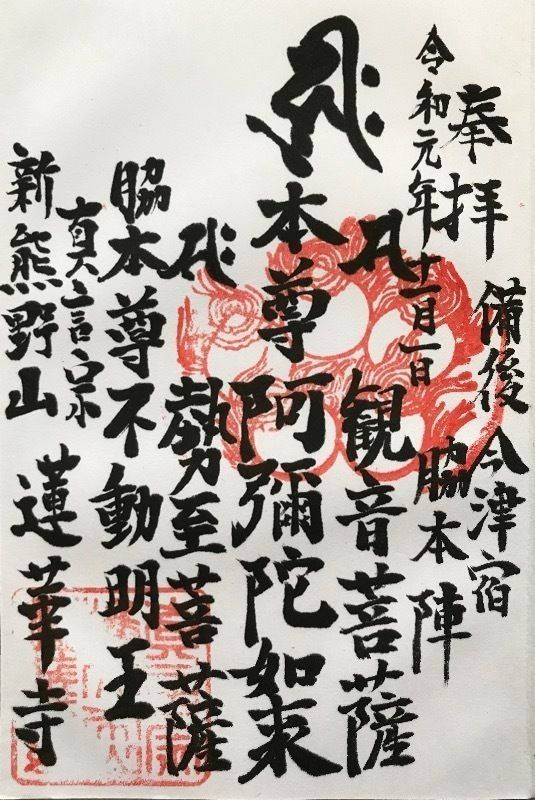 奉拝
備後今津宿
脇本陣
令和元年十一月一日
観音菩薩
本尊阿彌陀如来
勢至菩薩
脇本尊不動明王
真言宗
新熊野山蓮華寺